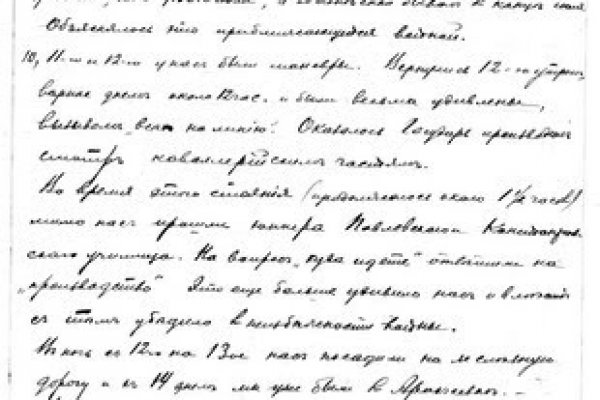 Объяснялось это приближающейся войной.
10, 11-го и 12-го у нас были маневры. Вернулись 12-го утром,
вернее днем около 12 час. и были весьма удивлены,
вызовом "всех на линию". Оказалось Государь производил
смотр кавалерийским частям.
Во время этого стояния (продолжалось около 1 1/2 часов)
мимо нас прошли юнкера Павловского Константинов
ского училища. На вопрос "куда идете" ответили на
"производство" Это еще больше удивило нас и
с тем убедило в неизбежности войны.
В ночь с 12-го на 13-ое нас посадили на железную
дорогу и в 14 днем мы уже были в